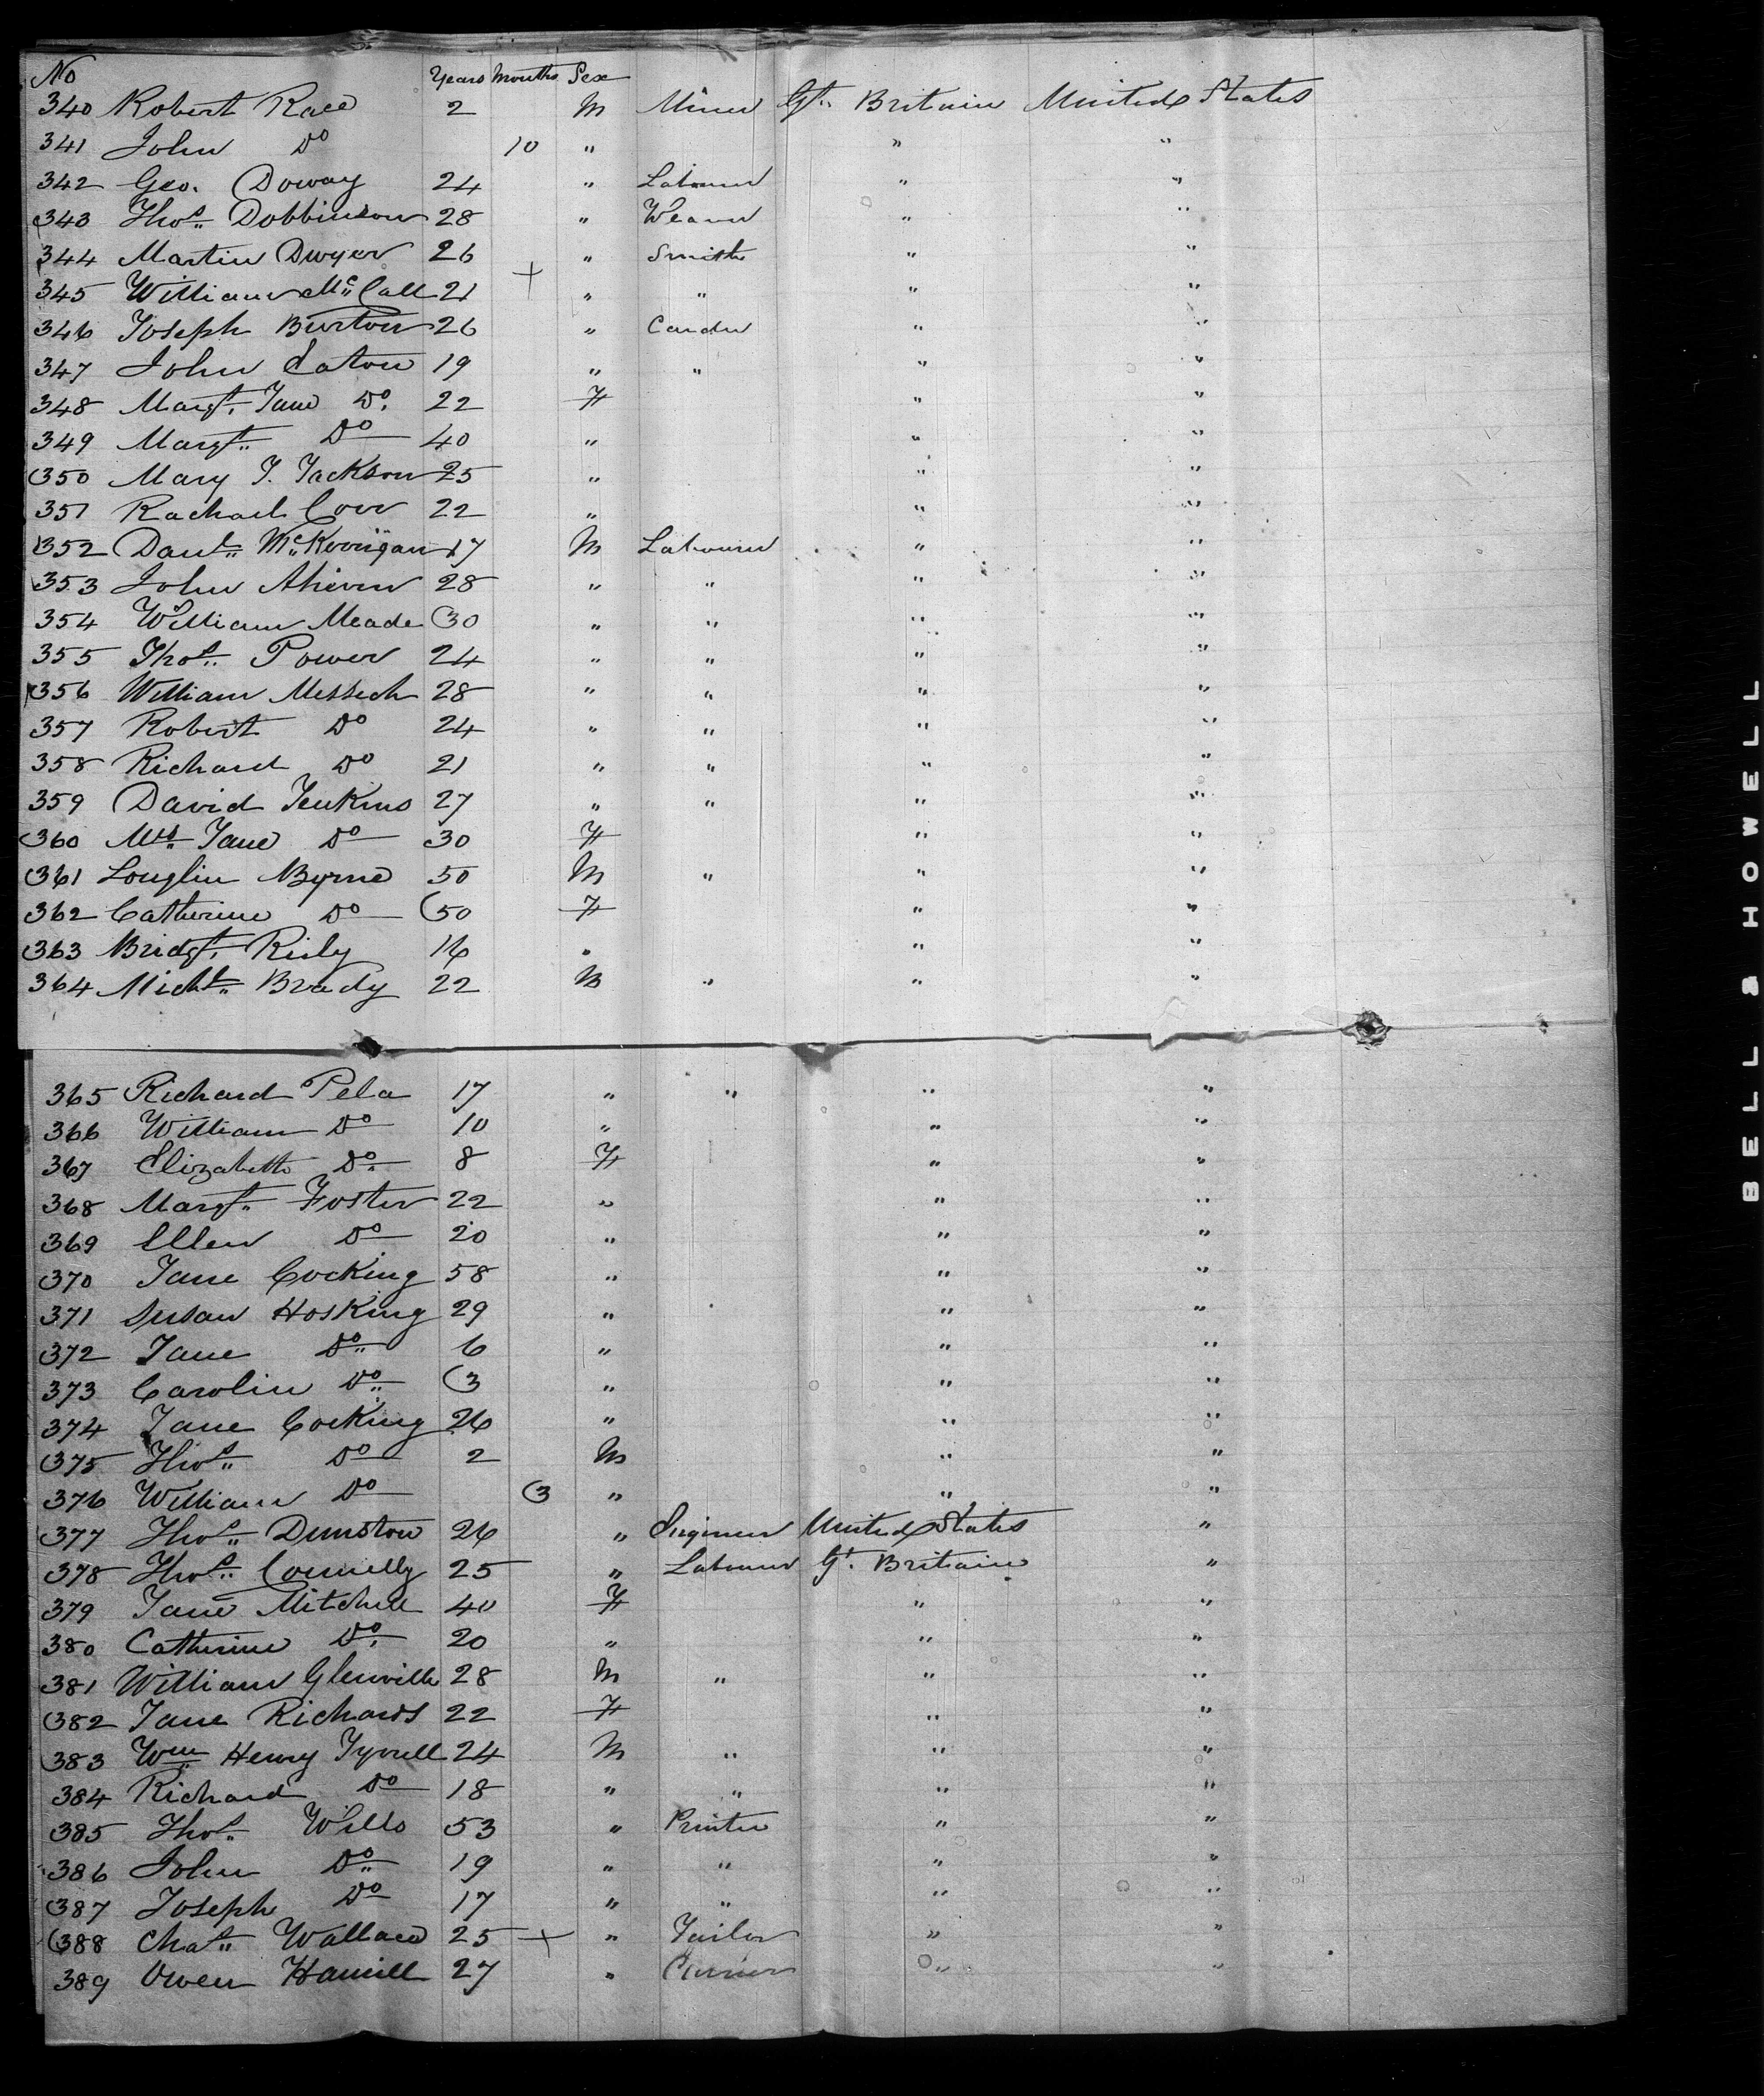 No Years Months Sex
340 Robert Race 2 M Miner Gt. Britain United States
341 John Do 10 " " "
342 Geo. Doway 24 " Labourer " "
343 Thos. Dobbinson 28 " Weaver " "
344 Martin Dwyer 26 " Smith " "
345 William McCall 21 + " " " "
346 Joseph Burton 26 " Carder " "
347 John Eaton 19 " " " "
348 Margt. Jane Do. 22 F " "
349 Margt. Do 40 " " "
350 Mary J. Jackson 25 " " "
351 Rachael Corr 22 " " "
352 Danl. McKorrigan 17 M Labourer " "
353 John Ahern 28 " " " "
354 William Meade 30 " " " "
355 Thos. Power 24 " " " "
356 William Messech 28 " " " "
357 Robert Do 24 " " " "
358 Richard Do 21 " " " "
359 David Jenkins 27 " " " "
360 Mrs. Jane Do 30 F " "
361 Louglin Byrne 50 M " " "
362 Catherine Do 50 F " "
363 Bridgt. Rily 16 " " "
364 Michl. Brady 22 M " " "
365 Richard Pela 17 " " " "
366 William Do 10 " " "
367 Elizabeth Do. 8 F " "
368 Margt. Foster 22 " " "
369 Ellen Do 20 " " "
370 Jane Cocking 58 " " "
371 Susan Hosking 29 " " "
372 Jane Do. 6 " " "
373 Carolin Do. 3 " " "
374 Jane Cocking 26 " " "
375 Thos. Do 2 M " "
376 William Do 3 " " "
377 Thos. Dunston 26 " Engineer United States "
378 Thos. Connelly 25 " Labourer Gt. Britain "
379 Jane Mitchell 40 F " "
380 Catherine Do. 20 " " "
381 William Glenville 28 M " " "
382 Jane Richards 22 F " "
383 Wm. Henry Tyrrell 24 M " " "
384 Richard Do 18 " " " "
385 Thos. Wills 53 " Printer " "
386 John Do. 19 " " " "
387 Joseph Do 17 " " " "
388 Chas. Wallace 25 + " Tailor " "
389 Owen Hamill 27 " " "
BELL & HOWELL